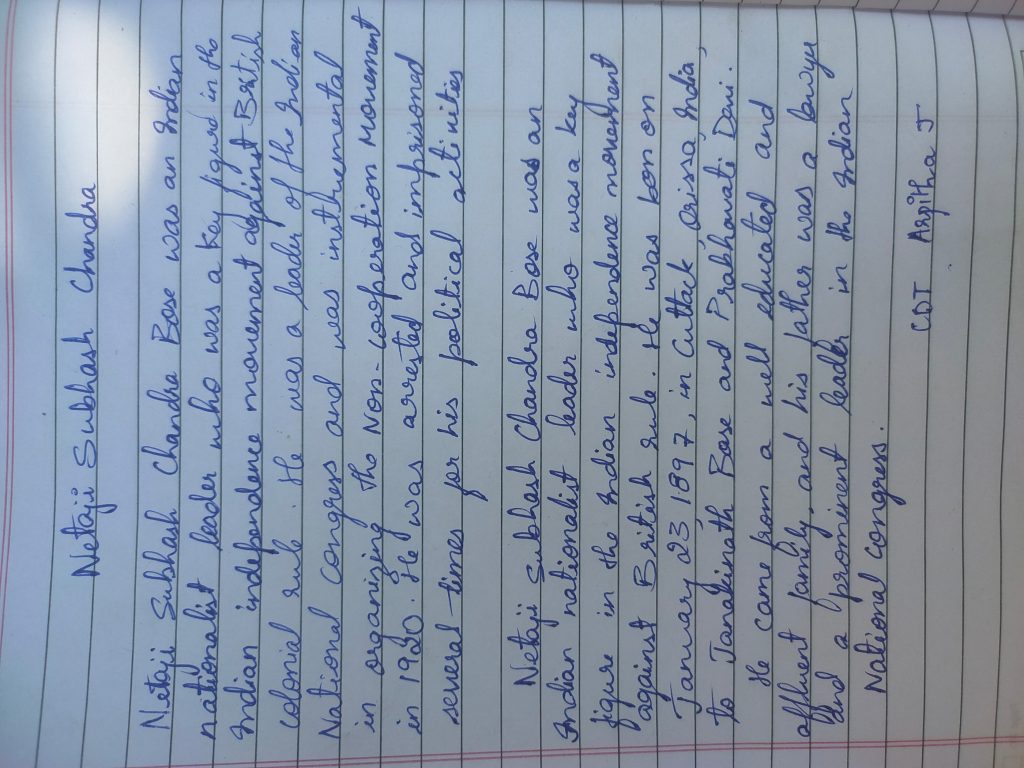 Netaji Subhash Chandra
Netaji Subhash Chandra Bose was an Indian
nationalist leader who was a key figure in the
Indian independence movement against British
colonial rule. He was a leader of the Indian
National Congress and was instrumental
in organizing the Non-cooperation Movement
in 1920. He was arrested and imprisoned
several times for his political activities
Netaji Subhash Chandra Bose was an
Indian nationalist leader who was a key
figure in the Indian independence movement
against British rule. He was born on
January 23, 1897, in Cuttack, Orissa, India,
to Janakinath Bose and Prabhavati Devi.
He came from a well educated and
affluent family, and his father was a lawyer
and a prominent leader in the Indian
National Congress.
CDT Anjitha J